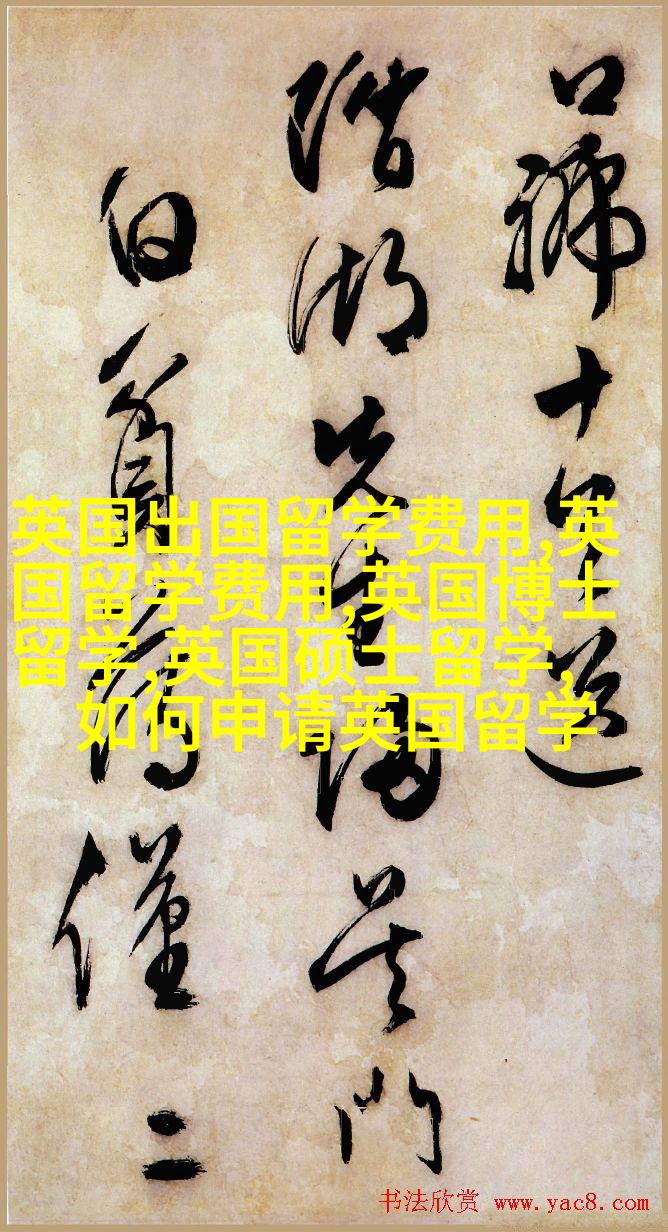 口號十送
湖先生歸吳門
僅二
英国出国留学费用,英
国留学费用,英国博士
留学,英国硕士留学,
如何申请英国留学
书法欣赏 www.yac8.com